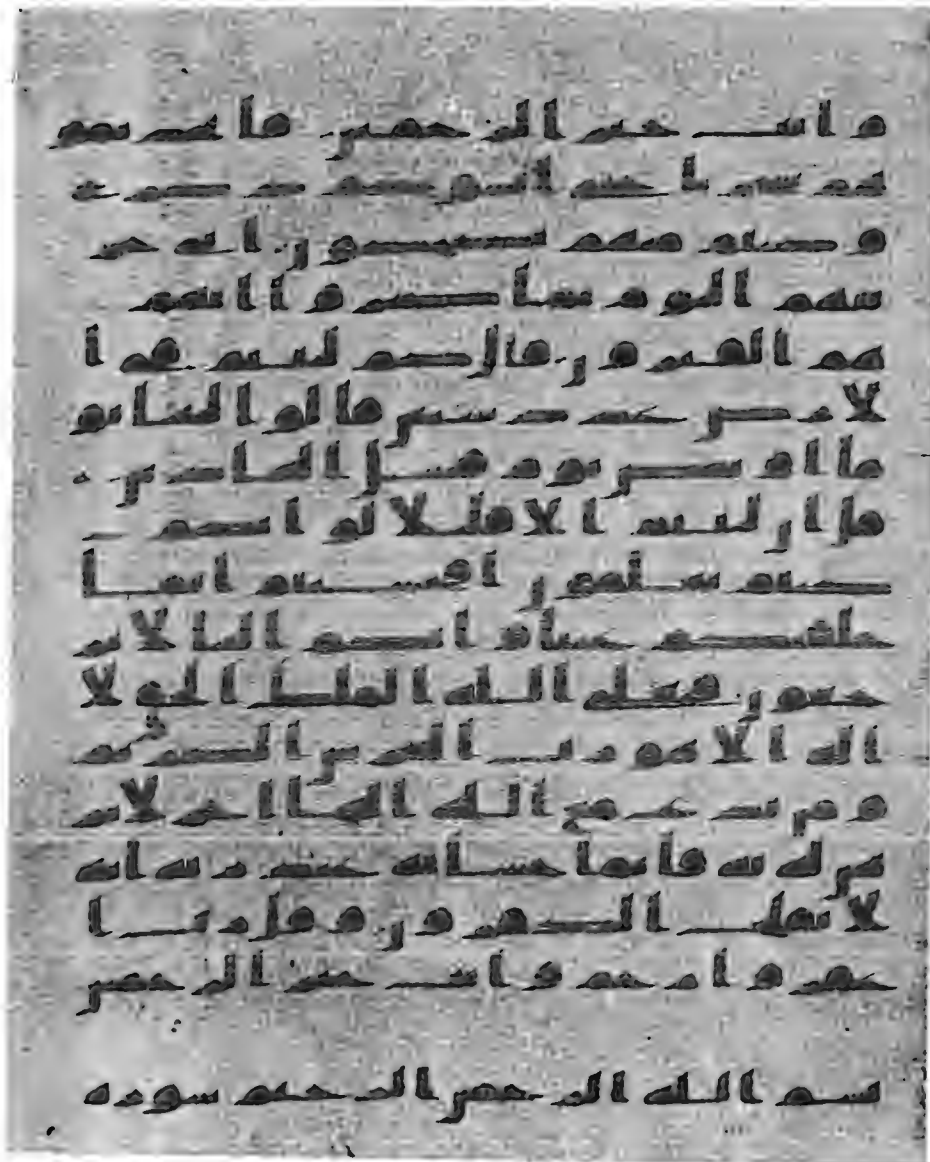 وانت خير الرحمين فاتخذتمو
هم سخريا حتى انسوكم ذكرى
وكنتم منهم تضحكون انى جز
يتهم اليوم بما صبروا انهم
هم الفئزون قل كم لبثتم فى ا
لارض عدد سنين قالوا لبثنا يو
ما او بعض يوم فسل العادين
قل ان لبثتم الا قليلا لو انكم
كنتم تعلمون افحسبتم انما
خلقنكم عبثا وانكم الينا لا تر
جعون فتعلى الله الملك الحق لا
اله الا هو رب العرش الكريم
ومن يدع مع الله الها اخر لا بر
هن له به فانما حسابه عند ربه انه
لا يفلح الكفرون وقل رب ا
غفر وارحم وانت خير الرحمين
بسم الله الرحمن الرحيم سورة